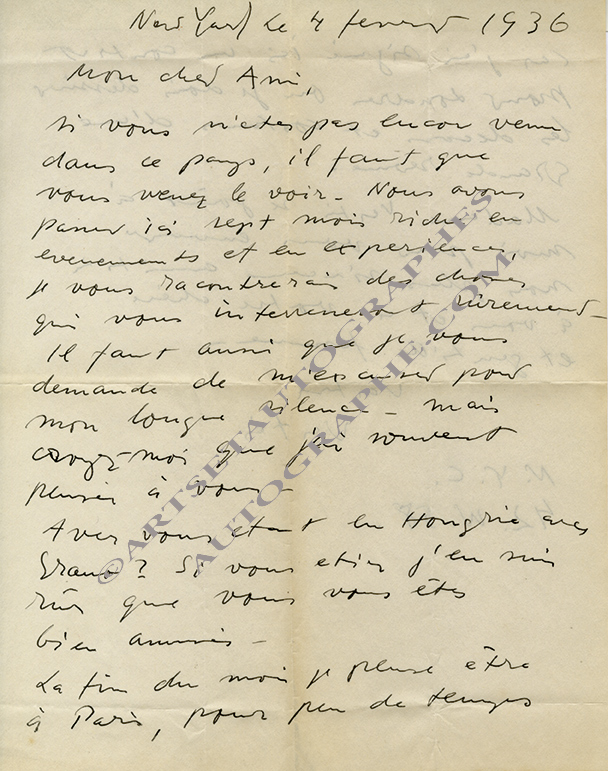 New York le 4 fevrier 1936
Mon cher Ami,
si vous n'etes pas encor venu
dans ce pays, il faut que
vous venez le voir - Nous avons
passer ici sept mois riches en
evenements et en experiences,
je vous racontrerais des choses
qui vous interresseront sûrement -
Il faut aussi que je vous
demande de m'excuser pour
mon longue silence - mais
croyez-moi que j'ai souvent
pensée à vous -
Avez vous etant en Hongrie avec
? Si vous etiez j'en suis
sûr que vous vous êtes
bien amusés -
La fin du mois je pense être
à Paris, pour peu de temps
N.Y.C.
©ARTSETAUTOGRAPHES
AUTOGRAPHE.COM